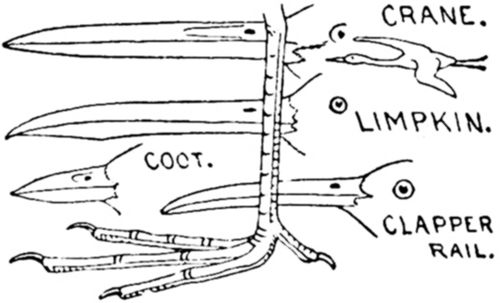 CRANE.
LIMPKIN.
COOT.
CLAPPER
RAIL.